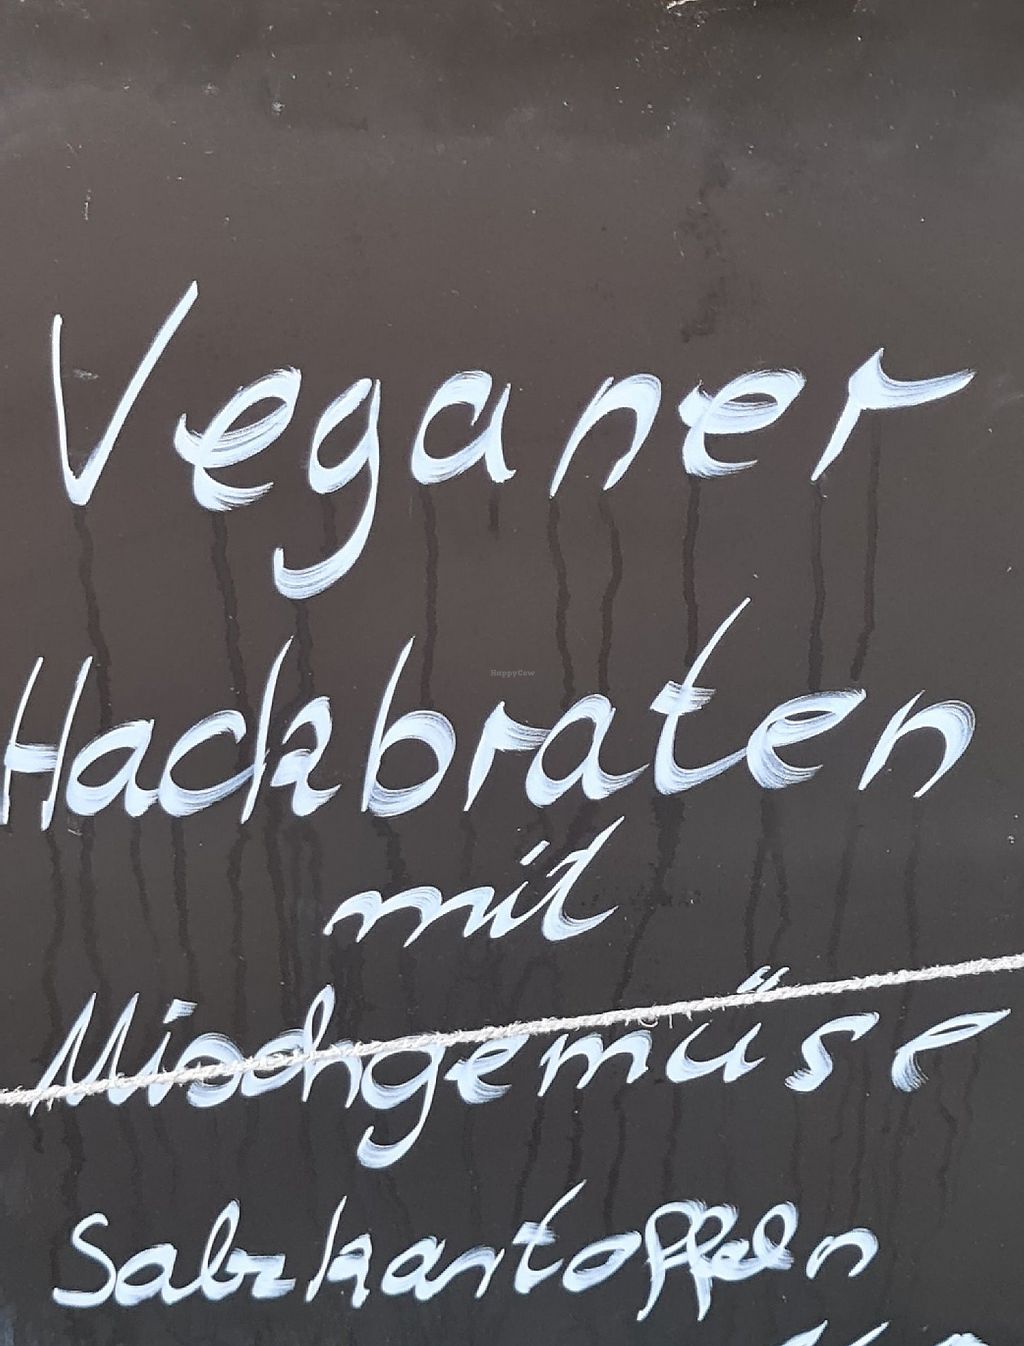 Veganer
Hackbraten
HappyCow
mit
Mischgemüse
Salzkartoffeln